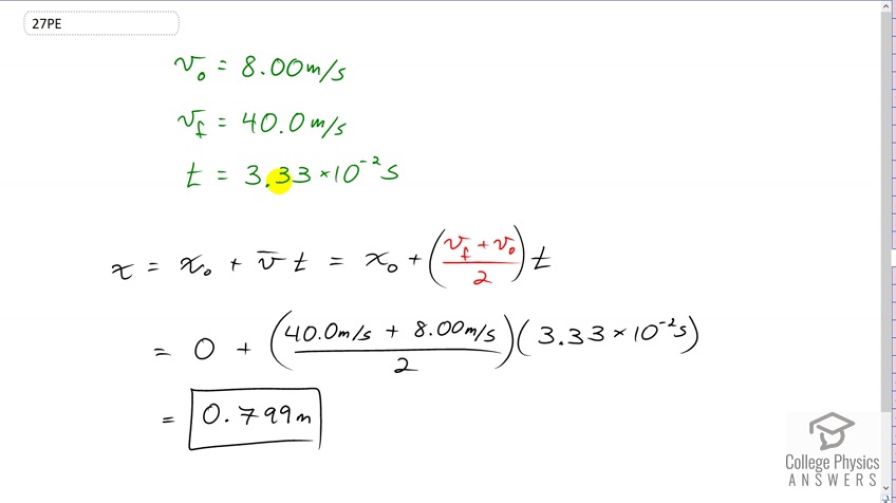 27PE
v₀ = 8.00 m/s
v_f = 40.0 m/s
t = 3.33 × 10⁻² s
x = x₀ + v̄ t = x₀ + ((v_f + v₀)/2) t
= 0 + ((40.0 m/s + 8.00 m/s)/2)(3.33 × 10⁻² s)
= 0.799 m
College Physics
ANSWERS